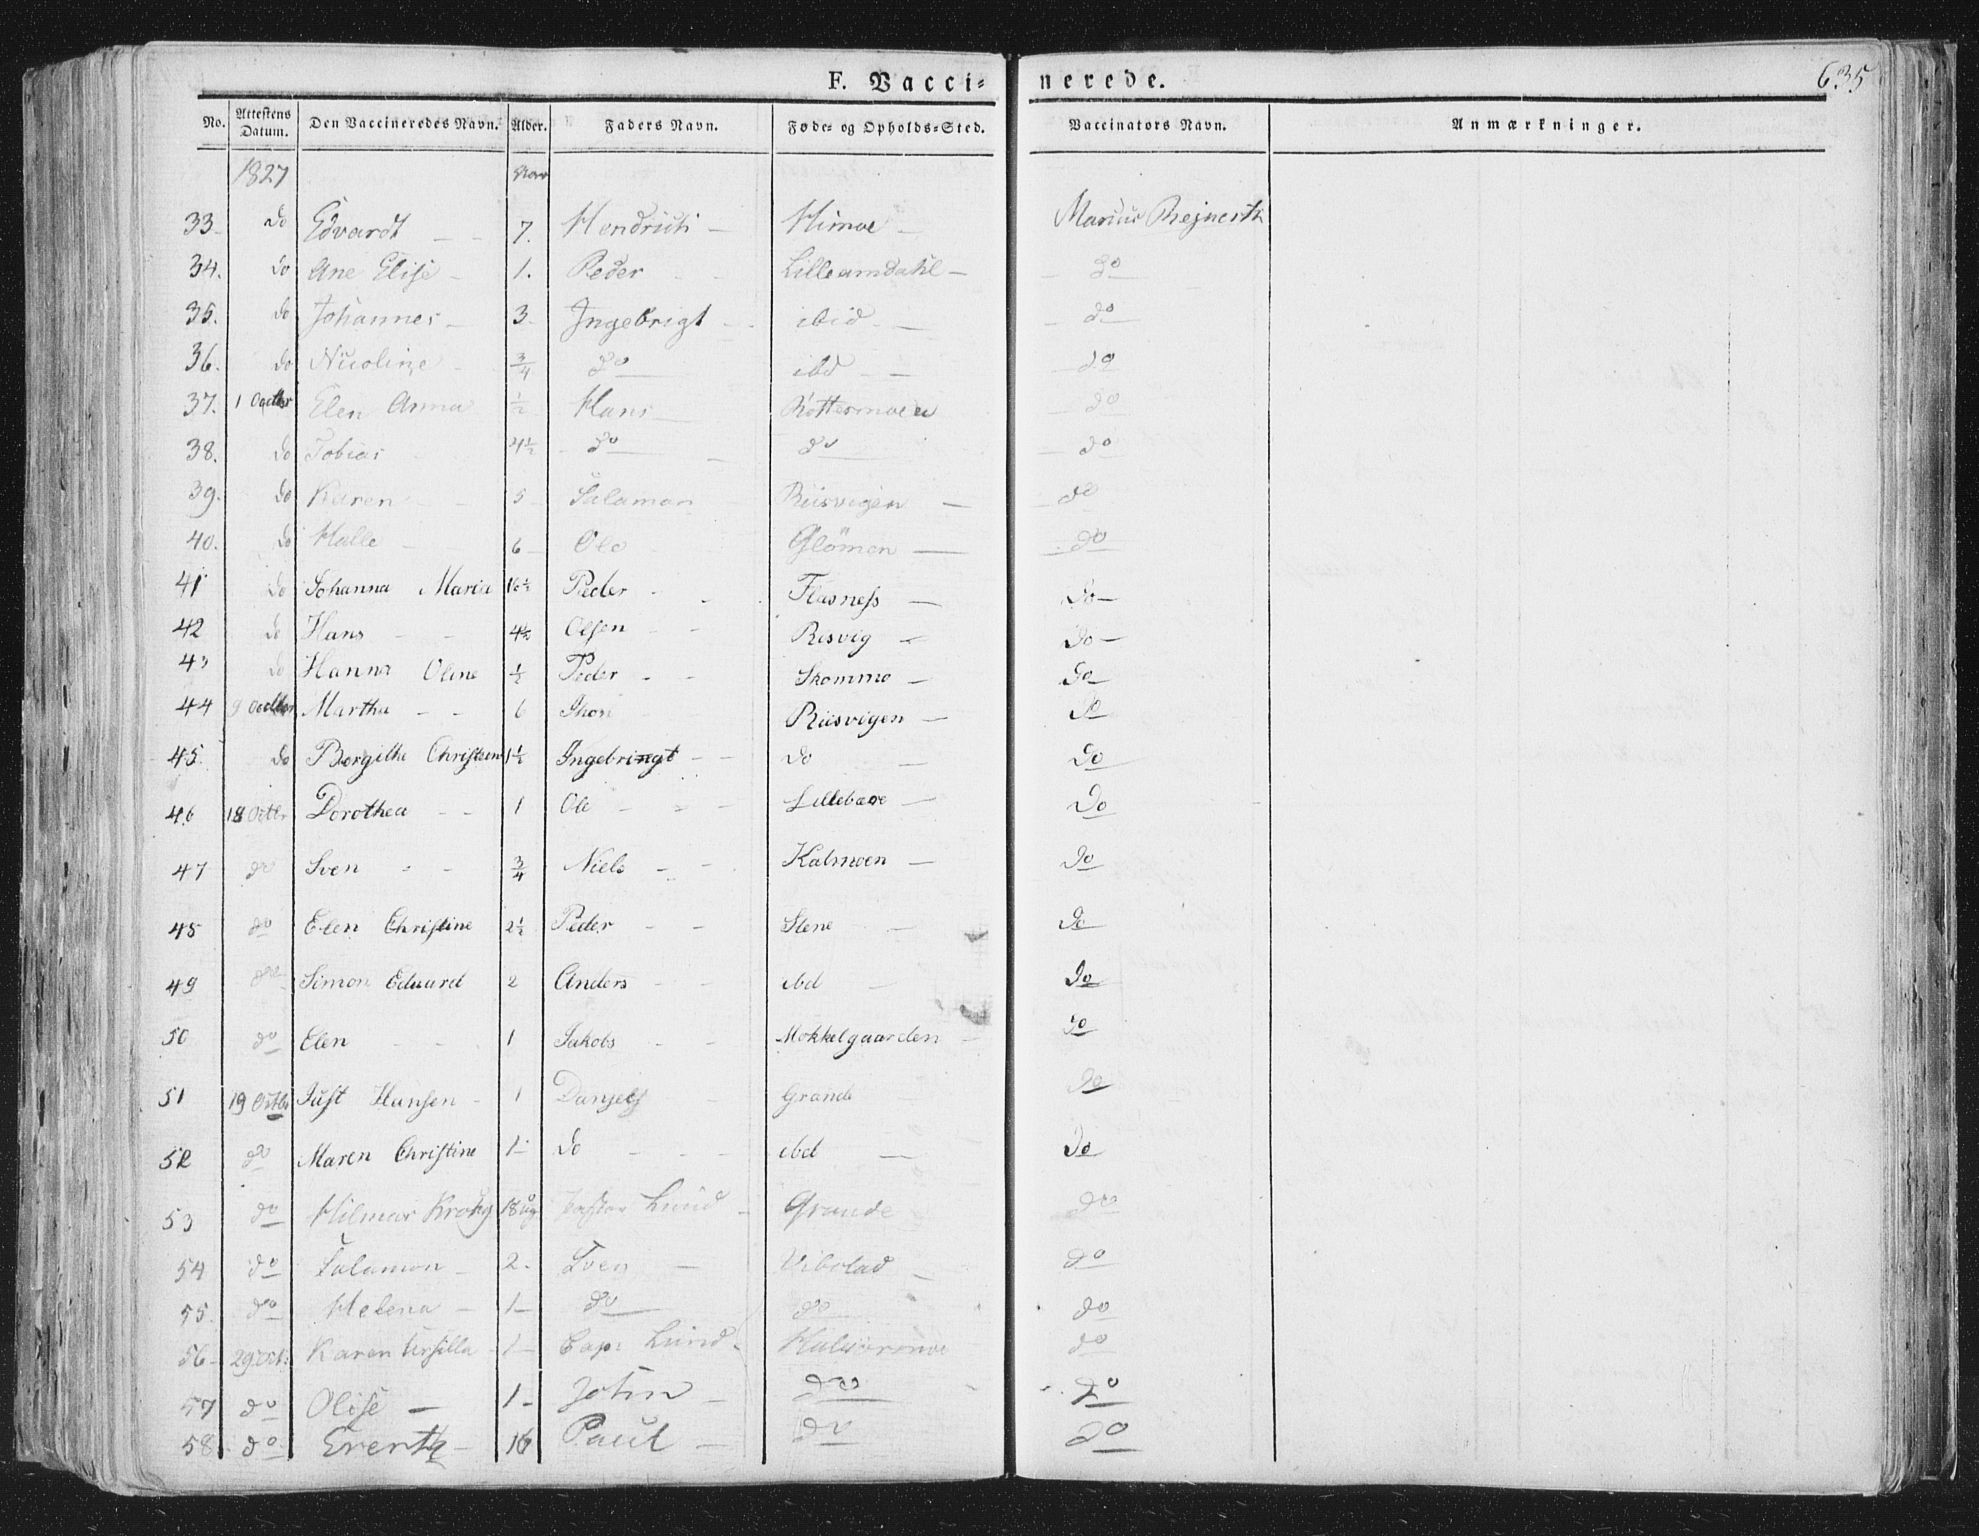 F. Vacci= nerede. 635
No. Attestens Datum. Den Vaccineredes Navn. Alder. Faders Navn. Føde= og Opholds=Sted. Vaccinators Navn. Anmærkninger.
1827
33. do Edvardt 7. Hendrich Himoe Marius
34. do Ane Elise 1. Peder Lilleamdahl do
35. do Johannes 3 Ingebrigt ibid do
36. do Nicoline 3/4 do ibd do
37. 1 Elen Anna 1/2 Hans do
38. do Tobias 4 1/2 do do do
39. do Karen 5 Salamon Riisvigen do
40. do Halle 6 Ole Glömen do
41 do Johanna Maria 16 1/2 Peder Flasness Do
42 do Hans 4 1/2 Olsen Risvig Do
43 do Hanna Oline 1/2 Peder Skommo Do
44 9 Martha 6 Jhon Riisvigen Do
45. do Bergithe 1 1/2 Ingebringt Do Do
46 18 Octbr Dorothea 1 Ole Do
47 do Sven 3/4 Niels Kalmoen Do
48 do Elen Christine 2 1/2 Peder Stene Do
49 do Simon Eduard 2 Anders ibd Do
50 do Elen 1 Jakobs Mokkelgaarden Do
51 19 Octbr Just Hansen 1 Grande Do
52 do Maren Christine 1 Do ibd Do
53 do Hilmar Krohg 18 Pastor Lund Grande do
54 do Salamon 2. Sven Vibstad do
55. do Helena 1 do do do
56 29 Oct. Karen Ursilla 1 Capt Lund do
57 do Olise 1 John do do
58 do 16 Paul do do